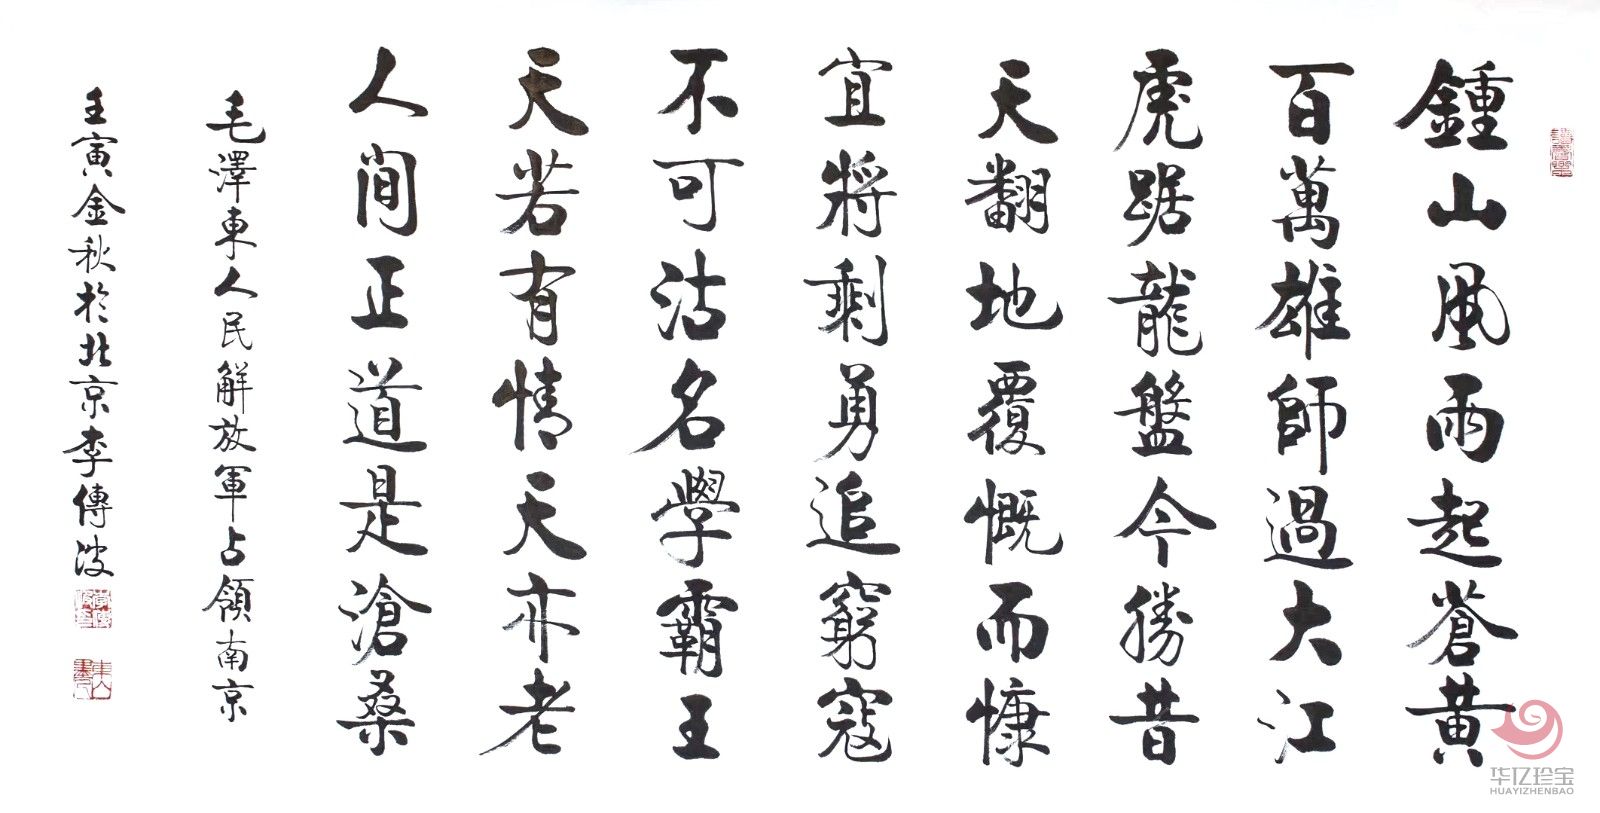 鍾山風雨起蒼黃
百萬雄師過大江
虎踞龍盤今勝昔
天翻地覆慨而慷
宜將剩勇追窮寇
不可沽名學霸王
天若有情天亦老
人間正道是滄桑
毛澤東人民解放軍占領南京
壬寅金秋於北京李傳波
华亿珍宝
HUAYIZHENBAO